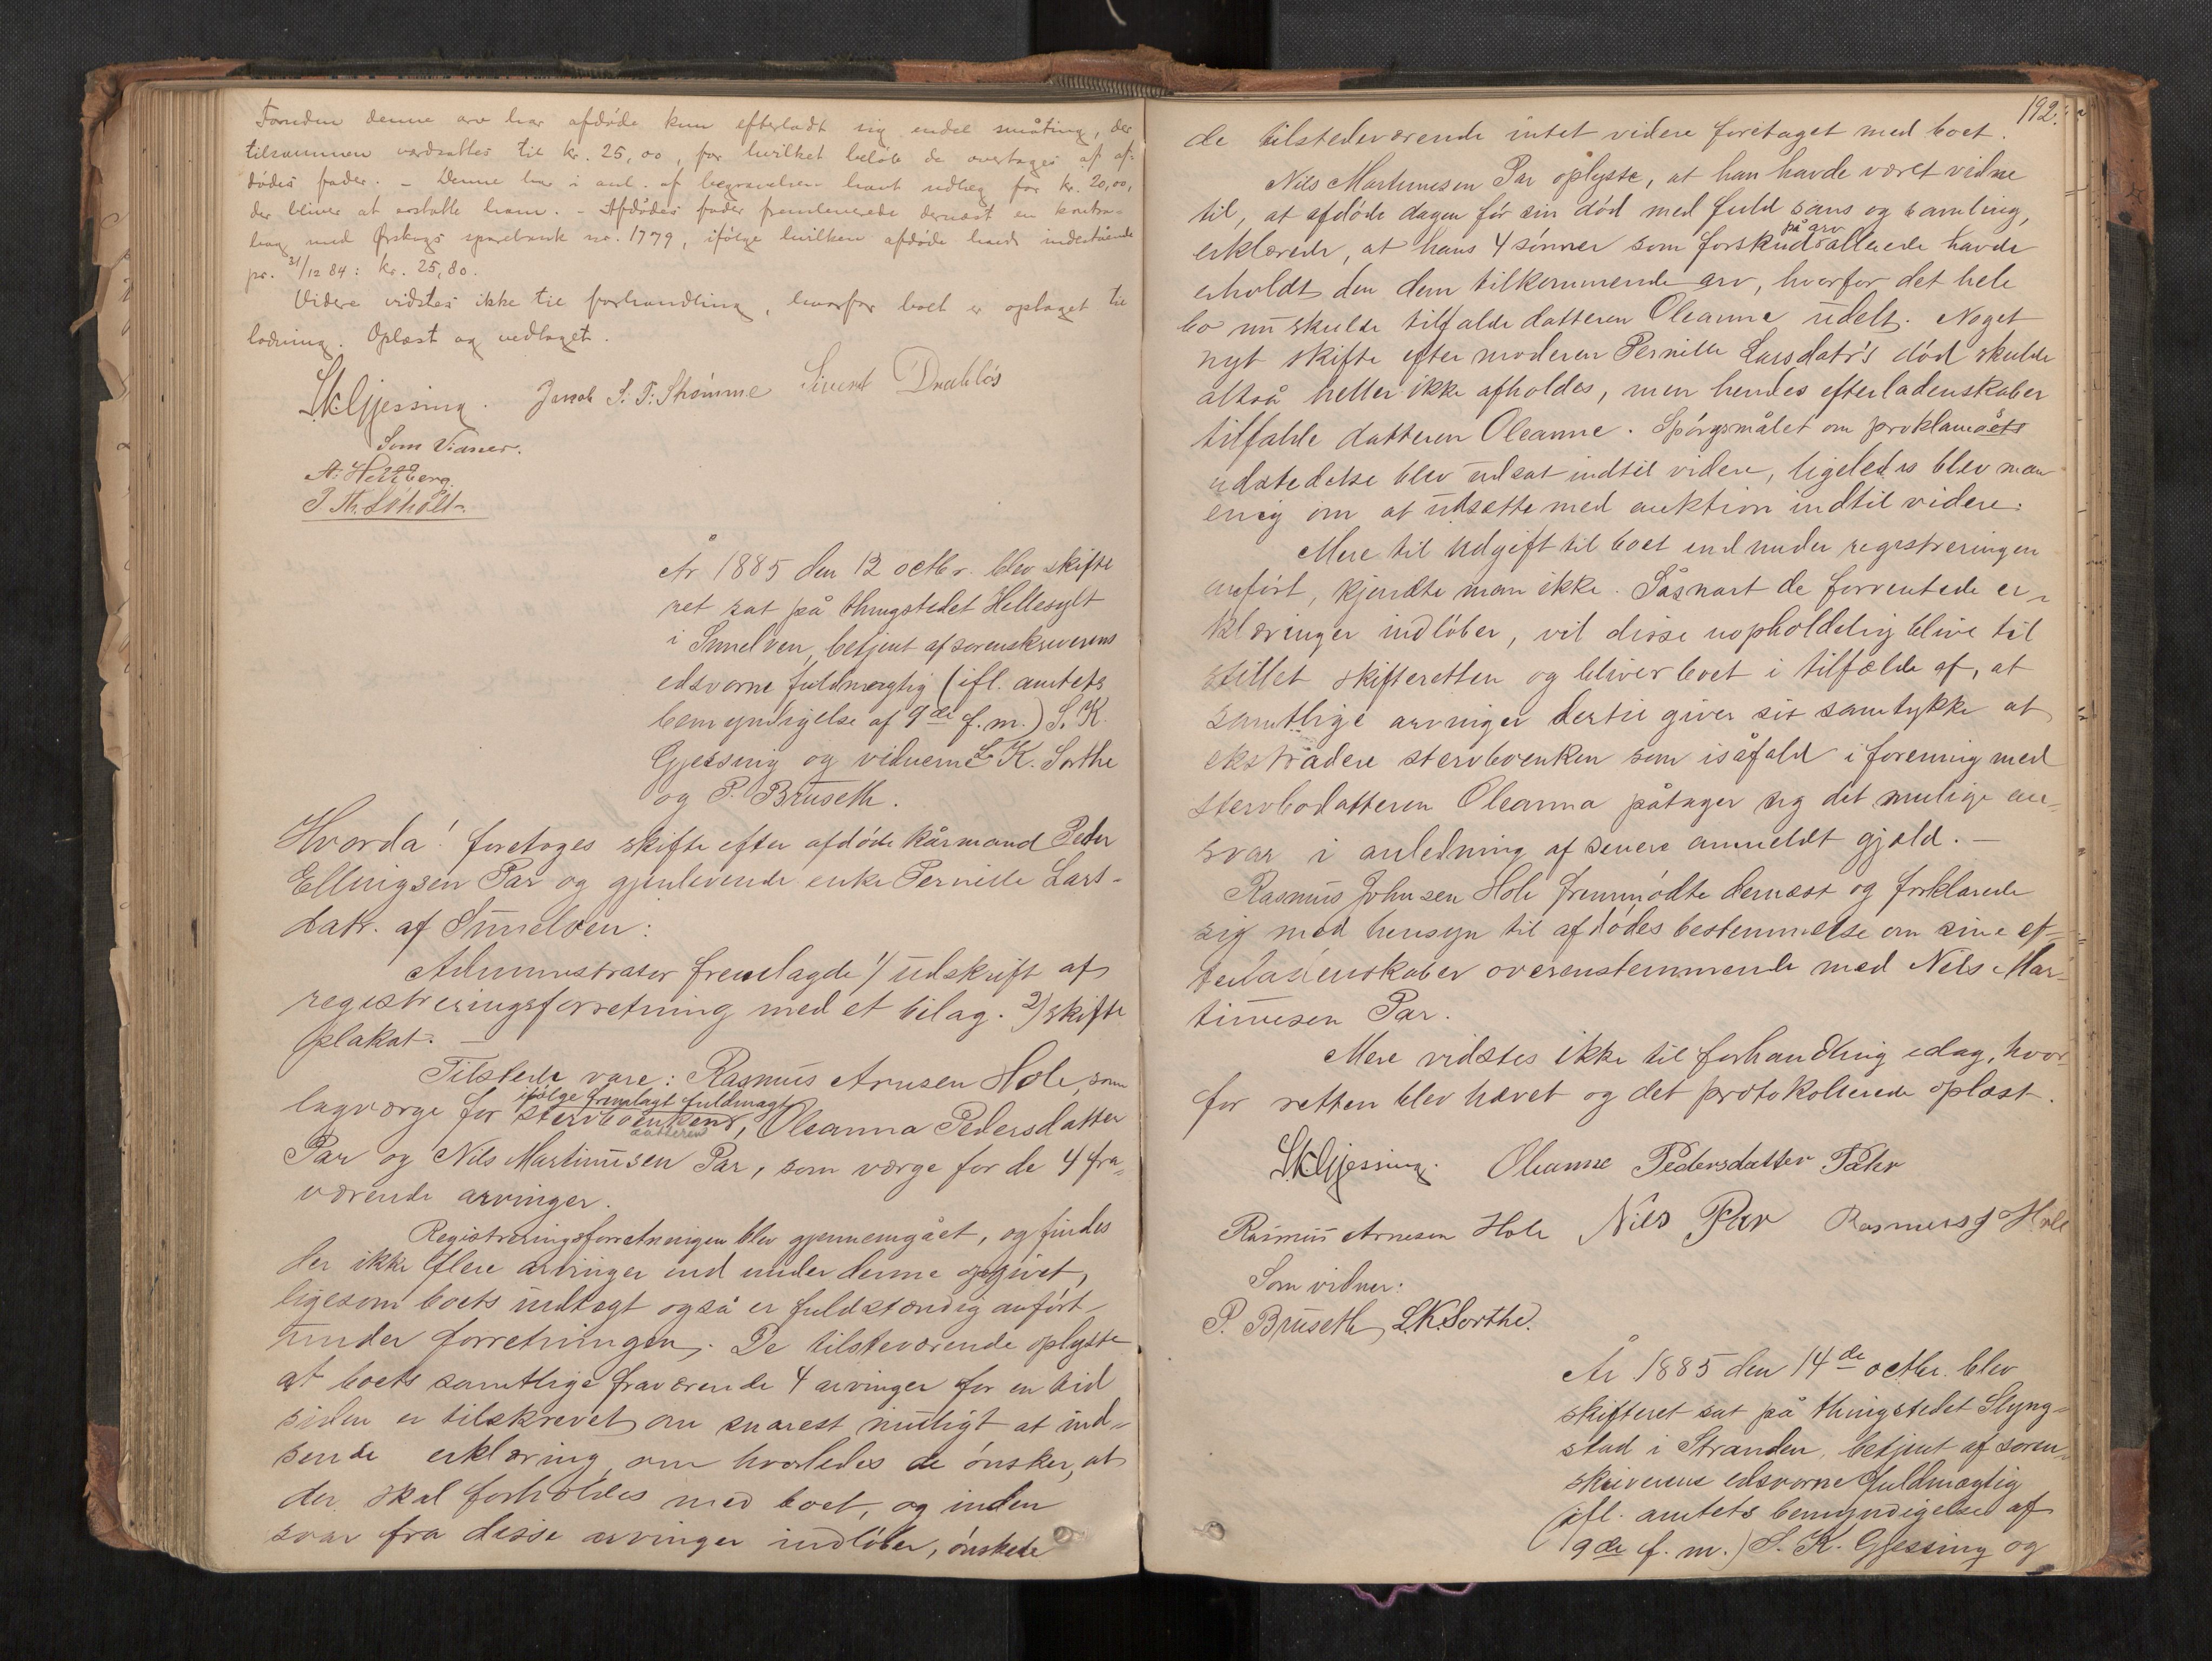 Foruden denne arv har afdøde kun efterladt sig endel småting, der
tilsammen værdsattes til kr. 25,00, for hvilket beløb de overtages af af-
dødes fader. – Denne har i anl. af begravelsen havt udlæg for kr. 20,00,
der bliver at erstatte ham. – Afdødes fader fremleverede dernæst en kontra-
bog med Ørskogs sparebank no. 1779, ifølge hvilken afdøde havde indestående
pr. 31/12 84: kr. 25,80.
Videre vidstes ikke til forhandling, hvorfor boet er optaget til
lodning. Oplæst og vedtaget.
S.K.Gjessing. Jacob S. T. Strømme Sivert Drabløs
Som Vidner.
A. Hertzberg.
J. Th. Løholt.
År 1885 den 12 octbr. blev skifte
ret sat på thingstedet Hellesylt
i Sunelven, betjent af sorenskriverens
edsvorne fuldmægtig (ifl. amtets
bemyndigelse af 9de f. m.) S. K.
Gjessing og vidnerne L. K. Sorthe
og P. Bruseth.
Hvorda! foretoges skifte efter afdøde kårmand Peder
Ellingsen Par og gjenlevende enke Pernille Lars-
datr. af Sunelven:
Administrator fremlagde 1/ udskrift af
registreringsforretning med et bilag. 2) skifte
plakat. –
Tilstede vare: Rasmus Arnesen Hole, som
ifølge fremlagt fuldmagt
lagværge for stervboenken,
datteren
Oleanna Pedersdatter
Par og Nils Martinusen Par, som værge for de 4 fra-
værende arvinger.
Registreringsforretningen blev gjennemgået, og findes
der ikke flere arvinger end under denne opgivet,
ligesom boets indtægt også er fuldstændig anført
under forretningen. De tilsteværende oplyste
at boets samtlige fraværende 4 arvinger for en tid
siden er tilskrevet om snarest muligt at ind-
sende erklæring om hvorledes de ønsker, at
der skal forholdes med boet, og inden
svar fra disse arvinger indløber, ønskede
192.
de tilstedeværende intet videre foretaget med boet.
Nils Martinusen Par oplyste, at han havde været vidne
til, at afdøde dagen før sin død med fuld sans og samling,
erklærede, at hans 4 sønner som forskud på arv allerede havde
erholdt den dem tilkommende arv, hvorfor det hele
bo nu skulde tilfalde datteren Oleanne udelt. Noget
nyt skifte efter moderen Pernille Larsdatr's død skulde
altså heller ikke afholdes, men hendes efterladenskaber
tilfalde datteren Oleanne. Spørgsmålet om proklamaets
udstedelse blev udsat indtil videre, ligeledes blev man
enig om at udsætte med auktion indtil videre.
Mere til udgift til boet end under registreringen
anført, kjendte man ikke. Såsnart de forventede er-
klæringer indløber, vil disse uopholdelig blive til
stillet skifteretten og bliver boet i tilfælde af, at
samtlige arvinger dertil giver sit samtykke at
ekstradere stervboenken som isåfald i forening med
stervbodatteren Oleanna påtager sig det mulige an-
svar i anledning af senere anmeldt gjæld. –
Rasmus Johnsen Hole fremmødte dernæst og forklarede
sig med hensyn til afdødes bestemmelse om sine ef-
terladenskaber overenstemmende med Nils Mar-
tinusen Par.
Mere vidstes ikke til forhandling idag, hvor
for retten blev hævet og det protokollerede oplæst.
S.K.Gjessing. Oleanne Pedersdatter Par
Rasmus Arnesen Hole Nils Par Rasmus J Hole
Som vidner:
P. Bruseth, L.K.Sorthe.
År 1885 den 14de octbr. blev
skifteret sat på thingstedet Slyng-
stad i Stranden, betjent af soren-
skriverens edsvorne fuldmægtig
(ifl. amtets bemyndigelse af
9de f. m.) S. K. Gjessing og